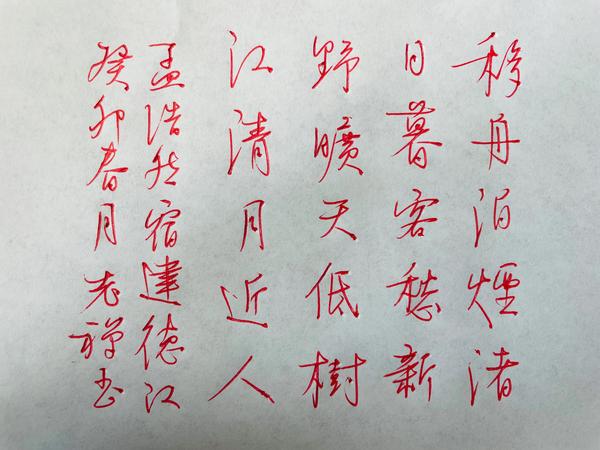 移舟泊煙渚
日暮客愁新
野曠天低樹
江清月近人
孟浩然宿建德江
癸卯春月志禅书